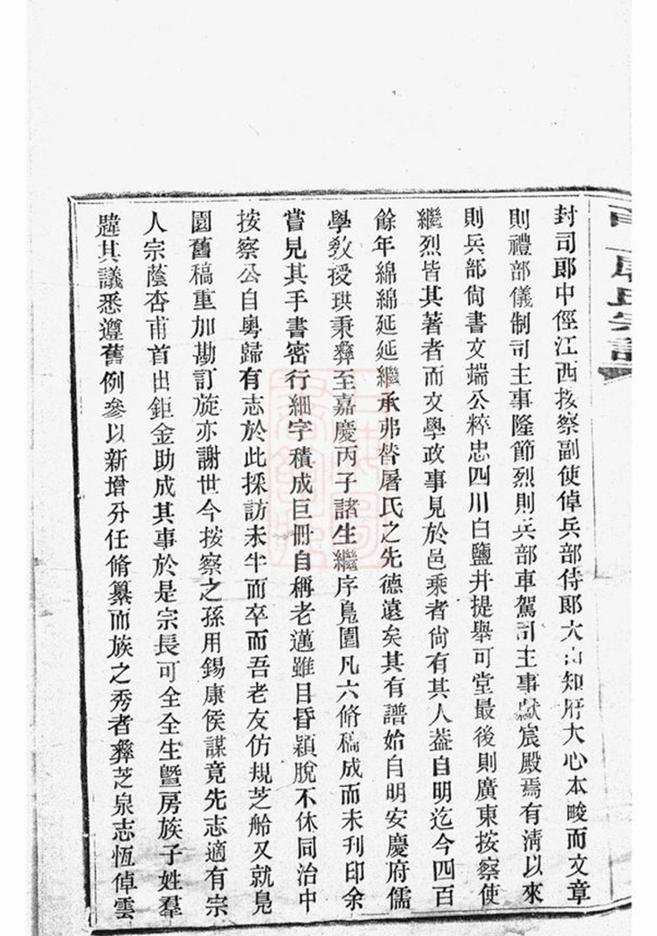 封司郎中俓江西按察副使倬兵部侍郎大山知府大心本畯而文章
則禮部儀制司主事隆節烈則兵部車駕司主事獻宸殿焉有淸以來
則兵部尙書文端公粹忠四川白鹽井提舉可堂最後則廣東按察使
繼烈皆其著者而文學政事見於邑乘者尙有其人葢自明迄今四百
餘年綿綿延延繼承弗替屠氏之先德遠矣其有譜始自明安慶府儒
學敎授珙秉彝至嘉慶丙子諸生繼序鳧園凡六脩稿成而未刊印余
嘗見其手書密行細字積成巨冊自稱老邁雖目昏穎脫不休同治中
按察公自粵歸有志於此採訪未半而卒而吾老友仿規芝舲又就鳧
園舊稿重加勘訂旋亦謝世今按察之孫用錫康侯謀竟先志適有宗
人宗蔭杏甫首出鉅金助成其事於是宗長可全全生曁房族子姓羣
韙其議悉遵舊例參以新增分任脩纂而族之秀者彝芝泉志恆倬雲
屠氏宗譜